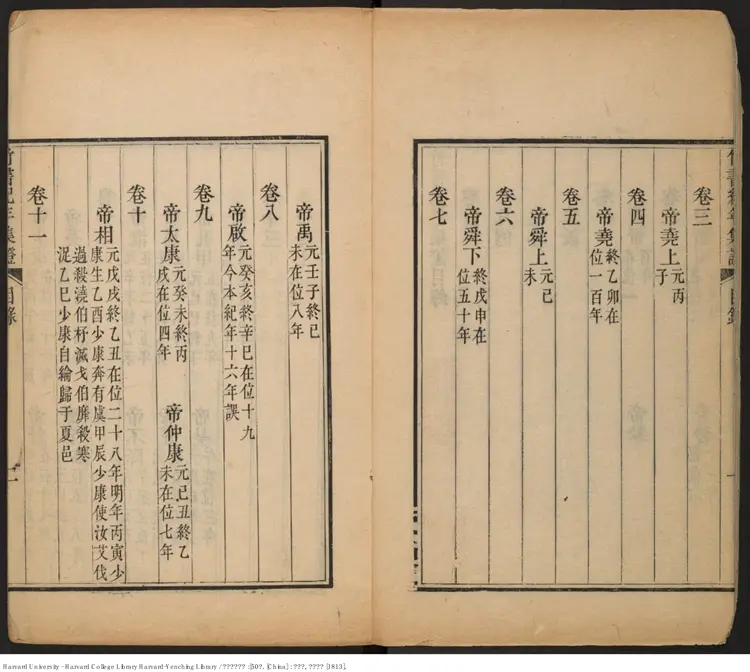 竹書紀年集證 目錄
卷三
帝堯上 元丙子
卷四
帝堯 終乙卯在位一百年
卷五
帝舜上 元己未
卷六
帝舜下 終戊申在位五十年
卷七
帝禹 元壬子終己未在位八年
卷八
帝啟 元癸亥終辛巳在位十九年今本紀年十六年誤
卷九
帝太康 元癸未終丙戌在位四年 帝仲康 元己丑終乙未在位七年
卷十
帝相 元戊戌終乙丑在位二十八年明年丙寅少康生乙酉少康奔有虞甲辰少康使汝艾伐過殺澆伯杼滅戈伯靡殺寒浞乙巳少康自綸歸于夏邑
卷十一
竹書紀年集證 目錄 二
Harvard University - Harvard College Library Harvard-Yenching Library / ?????? :[50?. [China] : ???, ???? [1813].